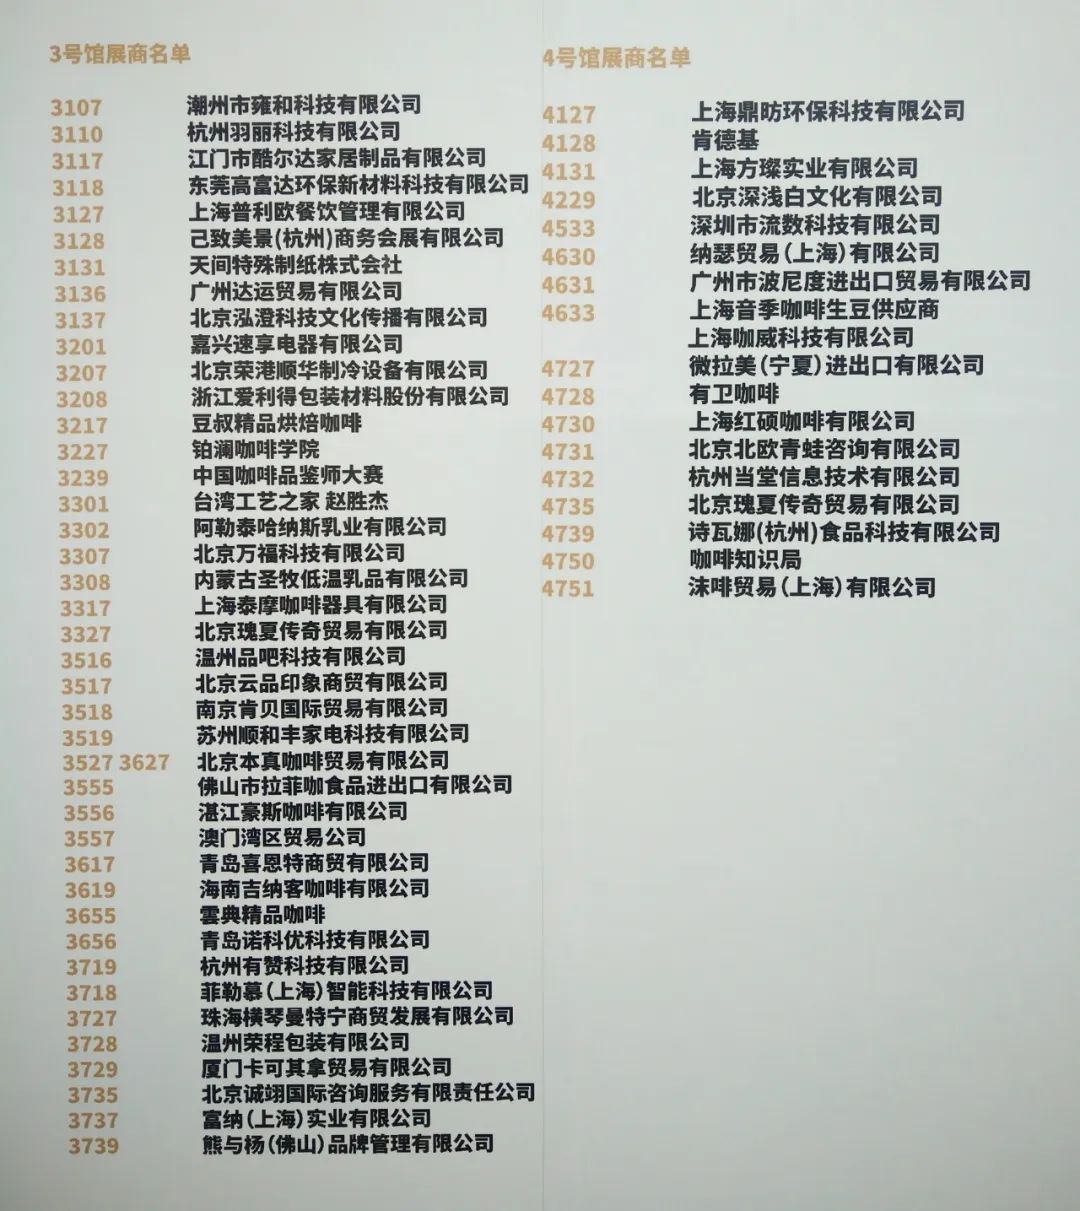 3号馆展商名单
3107 潮州市雍和科技有限公司
3110 杭州羽丽科技有限公司
3117 江门市酷尔达家居制品有限公司
3118 东莞高富达环保新材料科技有限公司
3127 上海普利欧餐饮管理有限公司
3128 己致美景(杭州)商务会展有限公司
3131 天间特殊制纸株式会社
3136 广州达运贸易有限公司
3137 北京泓澄科技文化传播有限公司
3201 嘉兴速享电器有限公司
3207 北京荣港顺华制冷设备有限公司
3208 浙江爱利得包装材料股份有限公司
3217 豆叔精品烘焙咖啡
3227 铂澜咖啡学院
3239 中国咖啡品鉴师大赛
3301 台湾工艺之家 赵胜杰
3302 阿勒泰哈纳斯乳业有限公司
3307 北京万福科技有限公司
3308 内蒙古圣牧低温乳品有限公司
3317 上海泰摩咖啡器具有限公司
3327 北京瑰夏传奇贸易有限公司
3516 温州品吧科技有限公司
3517 北京云品印象商贸有限公司
3518 南京肯贝国际贸易有限公司
3519 苏州顺和丰家电科技有限公司
3527 3627 北京本真咖啡贸易有限公司
3555 佛山市拉菲咖食品进出口有限公司
3556 湛江豪斯咖啡有限公司
3557 澳门湾区贸易公司
3617 青岛喜恩特商贸有限公司
3619 海南吉纳客咖啡有限公司
3655 雲典精品咖啡
3656 青岛诺科优科技有限公司
3719 杭州有赞科技有限公司
3718 菲勒慕(上海)智能科技有限公司
3727 珠海横琴曼特宁商贸发展有限公司
3728 温州荣程包装有限公司
3729 厦门卡可其拿贸易有限公司
3735 北京诚翊国际咨询服务有限责任公司
3737 富纳(上海)实业有限公司
3739 熊与杨(佛山)品牌管理有限公司
4号馆展商名单
4127 上海鼎昉环保科技有限公司
4128 肯德基
4131 上海方璨实业有限公司
4229 北京深浅白文化有限公司
4533 深圳市流数科技有限公司
4630 纳瑟贸易(上海)有限公司
4631 广州市波尼度进出口贸易有限公司
4633 上海音季咖啡生豆供应商
上海咖威科技有限公司
4727 微拉美(宁夏)进出口有限公司
4728 有卫咖啡
4730 上海红硕咖啡有限公司
4731 北京北欧青蛙咨询有限公司
4732 杭州当堂信息技术有限公司
4735 北京瑰夏传奇贸易有限公司
4739 诗瓦娜(杭州)食品科技有限公司
4750 咖啡知识局
4751 沫啡贸易(上海)有限公司